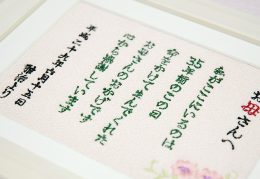 お母さんへ
私がここにいるのは
35年前のこの日
命をかけて生んでくれた
お母さんのおかげです
心から感謝しています
平成二十九年六月十五日
より